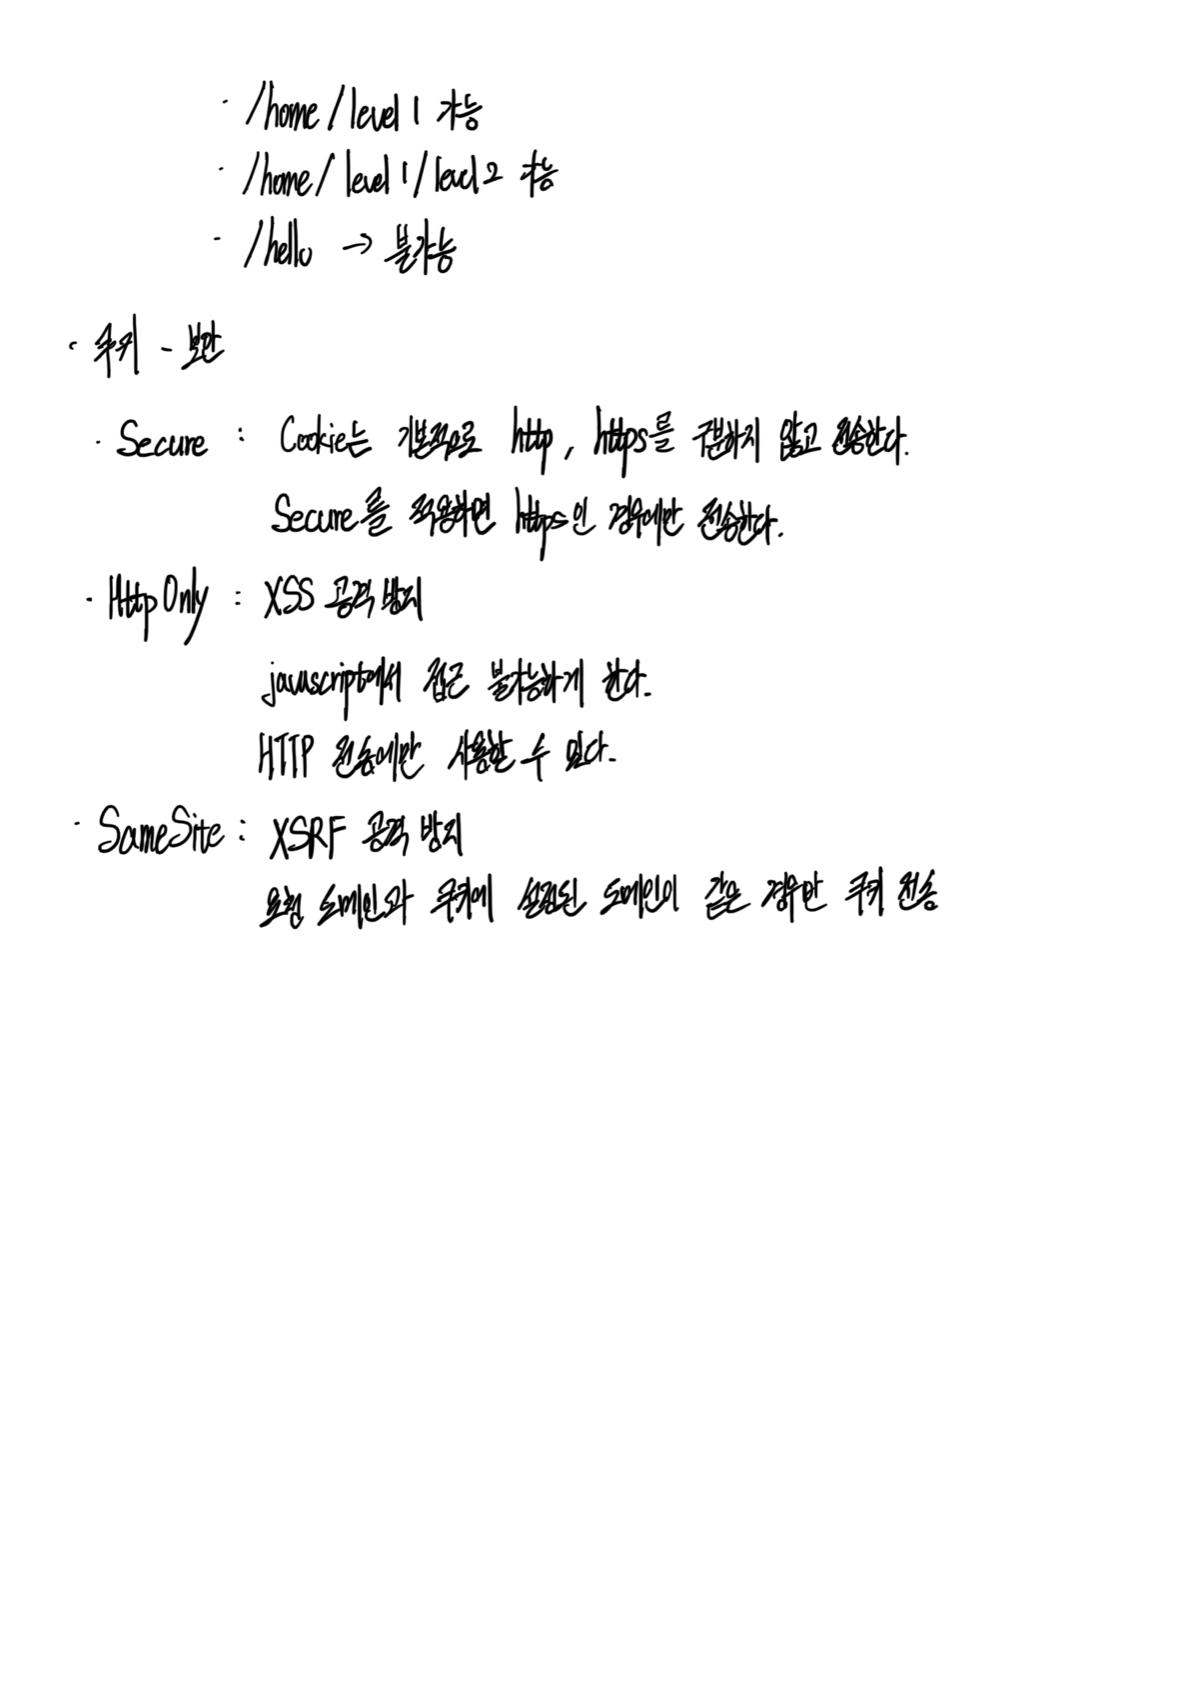 · /home/level1 가능
· /home/level1/level2 가능
· /hello → 불가능
· 쿠키 - 보안
· Secure : Cookie는 기본적으로 http, https를 구분하지 않고 전송한다.
Secure를 적용하면 https인 경우에만 전송한다.
· HttpOnly : XSS 공격 방지
javascript에서 접근 불가능하게 한다.
HTTP 전송에만 사용할 수 있다.
· SameSite : XSRF 공격 방지
요청 도메인과 쿠키에 설정된 도메인이 같은 경우만 쿠키 전송